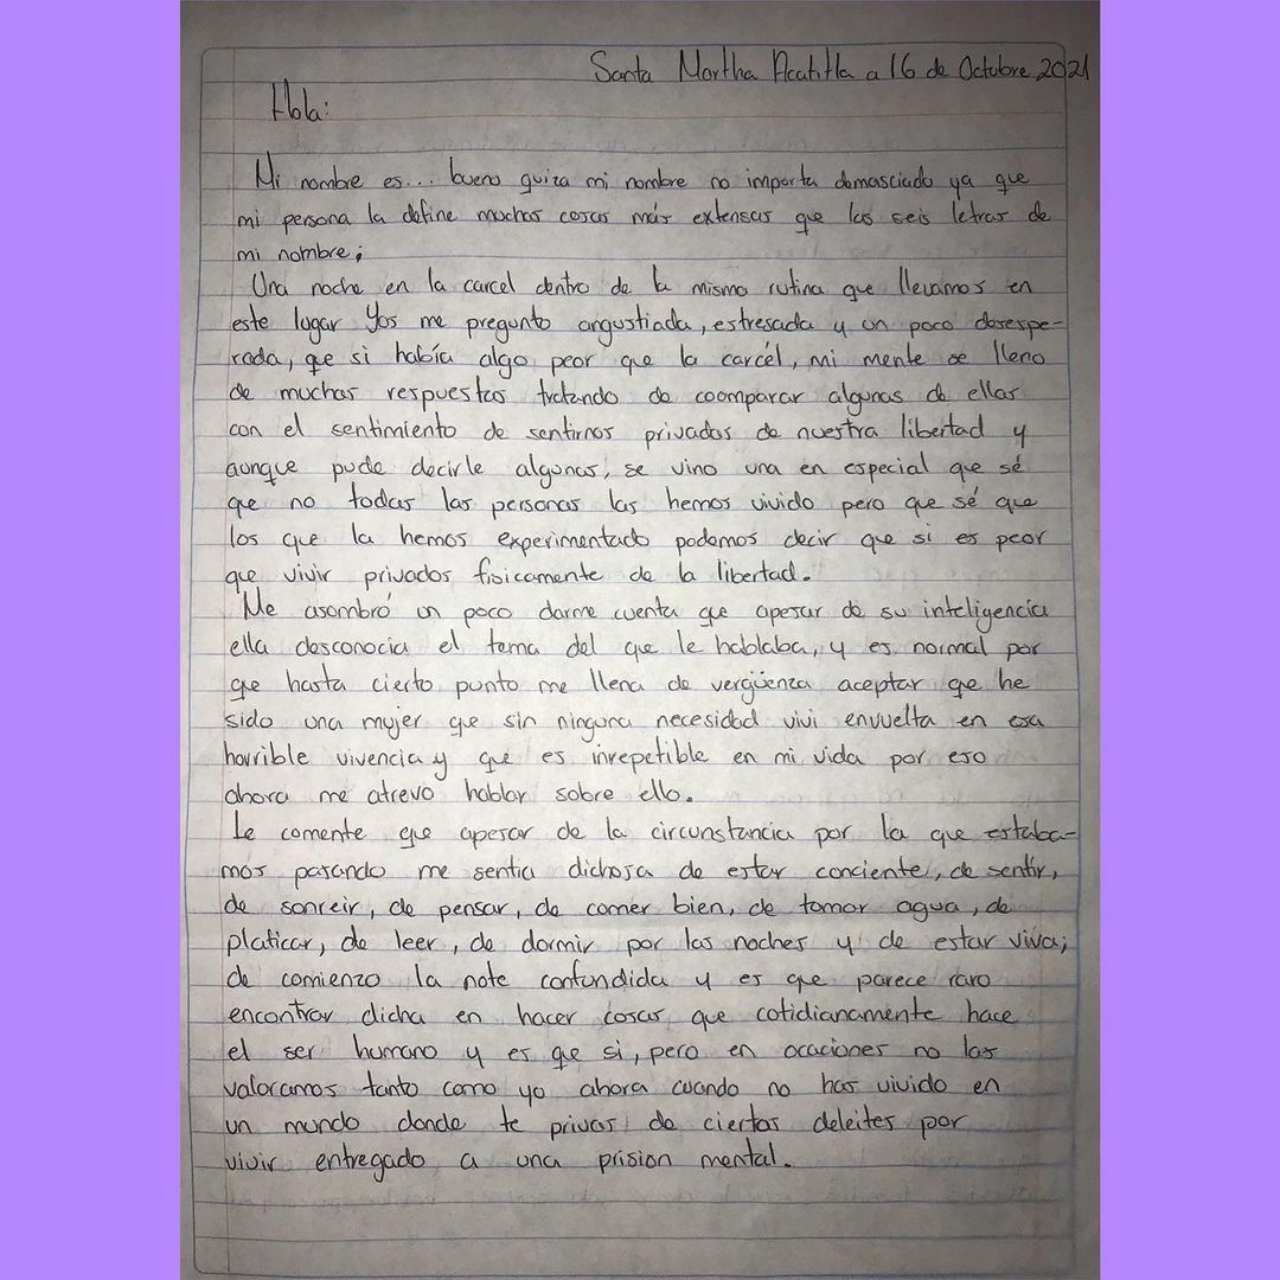 Santa Martha Acatitla a 16 de Octubre 2021
Hola:
Mi nombre es... bueno quiza mi nombre no importa demasciado ya que
mi persona la define muchas cosas más extensas que las seis letras de
mi nombre;
Una noche en la carcel dentro de la misma rutina que llevamos en
este lugar Yos me pregunto angustiada, estresada y un poco desespe-
rada, que si había algo peor que la carcél, mi mente se lleno
de muchas respuestas tratando de coomparar algunas de ellas
con el sentimiento de sentirnos privadas de nuestra libertad y
aunque pude decirle algunas, se vino una en especial que sé
que no todas las personas las hemos vivido pero que sé que
los que la hemos experimentado podemos decir que si es peor
que vivir privados fisicamente de la libertad.
Me asombró un poco darme cuenta que apesar de su inteligencia
ella desconocia el tema del que le hablaba, y es normal por
que hasta cierto punto me llena de vergüenza aceptar que he
sido una mujer que sin ninguna necesidad vivi envuelta en esa
horrible vivencia y que es irrepetible en mi vida por eso
ahora me atrevo hablar sobre ello.
Le comente que apesar de la circunstancia por la que estaba-
mos pasando me sentia dichosa de estar conciente, de sentir,
de sonreir, de pensar, de comer bien, de tomar agua, de
platicar, de leer, de dormir por las noches y de estar viva;
de comienzo la note confundida y es que parece raro
encontrar dicha en hacer cosas que cotidianamente hace
el ser humano y es que si, pero en ocaciones no las
valoramos tanto como yo ahora cuando no has vivido en
un mundo donde te privas de ciertos deleites por
vivir entregado a una prision mental.